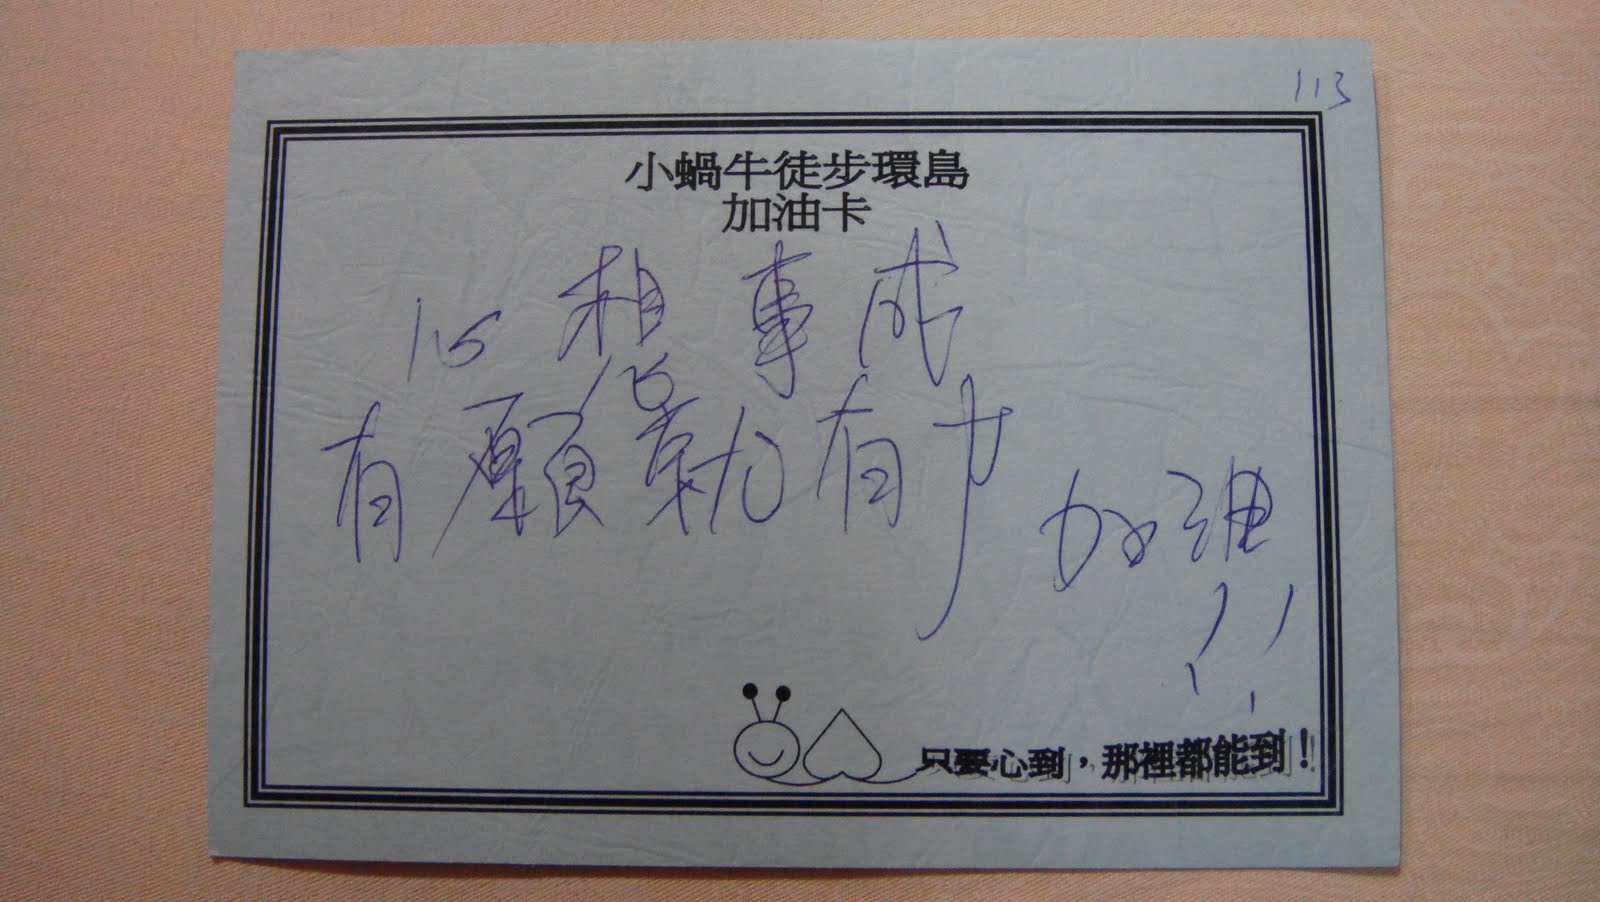 113
小蝸牛徒步環島
加油卡
心想事成
有願就有力
加油!!
只要心到，那裡都能到！